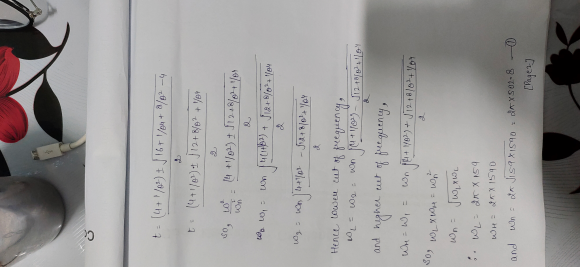 t = (4+1/Q²) ± √16+1/Q4 + 8/Q² - 4
2
t = (4+1/Q²) ± √12+8/Q²+1/Q4
2
So, ω²/ωn² = (4+1/Q²) ± √12+8/Q²+1/Q4
2
ω1 = ωn √(4+1/Q²) + √12+8/Q²+1/Q4
2
ω2 = ωn √4+1/Q² - √12+8/Q²+1/Q4
2
Hence lower cut of frequency,
ωL = ω2 = ωn √(4+1/Q²) - √12+8/Q²+1/Q4
2
and higher cut of frequency,
ωH = ω1 = ωn √(4+1/Q²) + √12+8/Q²+1/Q4
2
So, ωL×ωH = ωn²
ωn = √ωL×ωH
∴ ωL = 2π×159
ωH = 2π×1590
and ωn = 2π√159×1590 = 2π×502.8 — ①
[Page 2]